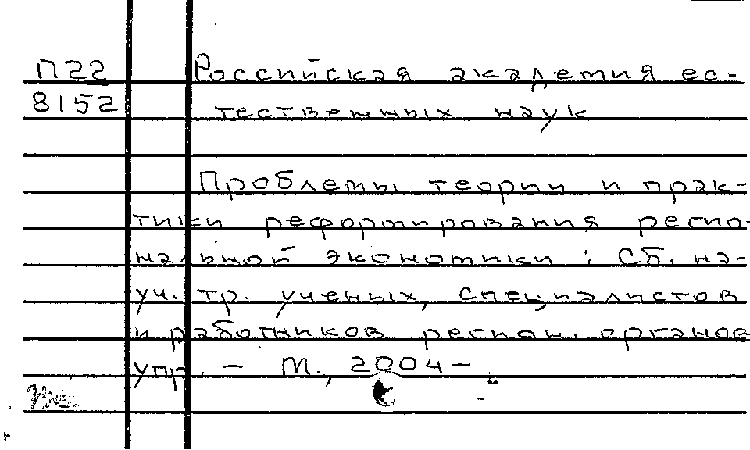 П22 Российская академия ес-
8152 тественных наук
Проблемы теории и прак-
тики реформирования регио-
нальной экономики : Сб. на-
уч. тр. ученых, специалистов
и работников регион. органов
упр. - М., 2004-.